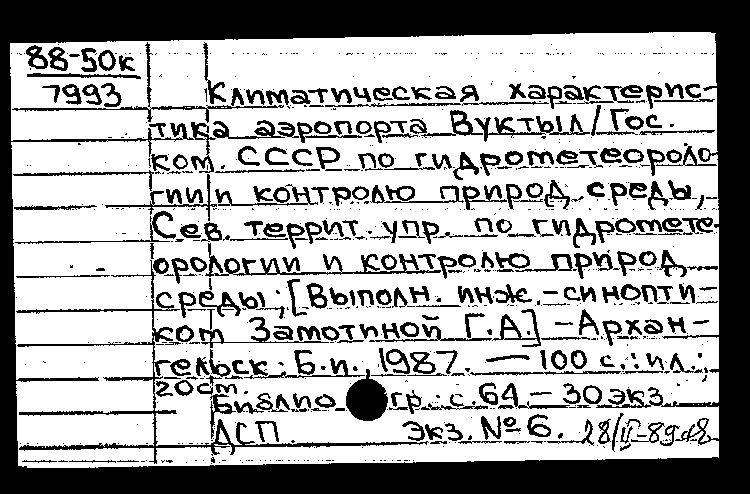 88-50к
7993
Климатическая характерис-
тика аэропорта Вуктыл/Гос.
ком. СССР по гидрометеороло-
гии и контролю природ. среды,
Сев. террит. упр. по гидромете-
орологии и контролю природ.
среды; [Выполн. инж.-синопти-
ком Замотиной Г.А.] - Архан-
гельск: Б.и., 1987. — 100 с.: ил.;
20 см.
Библиогр.: с. 64. - 30 экз.
ДСП. Экз. № 6.